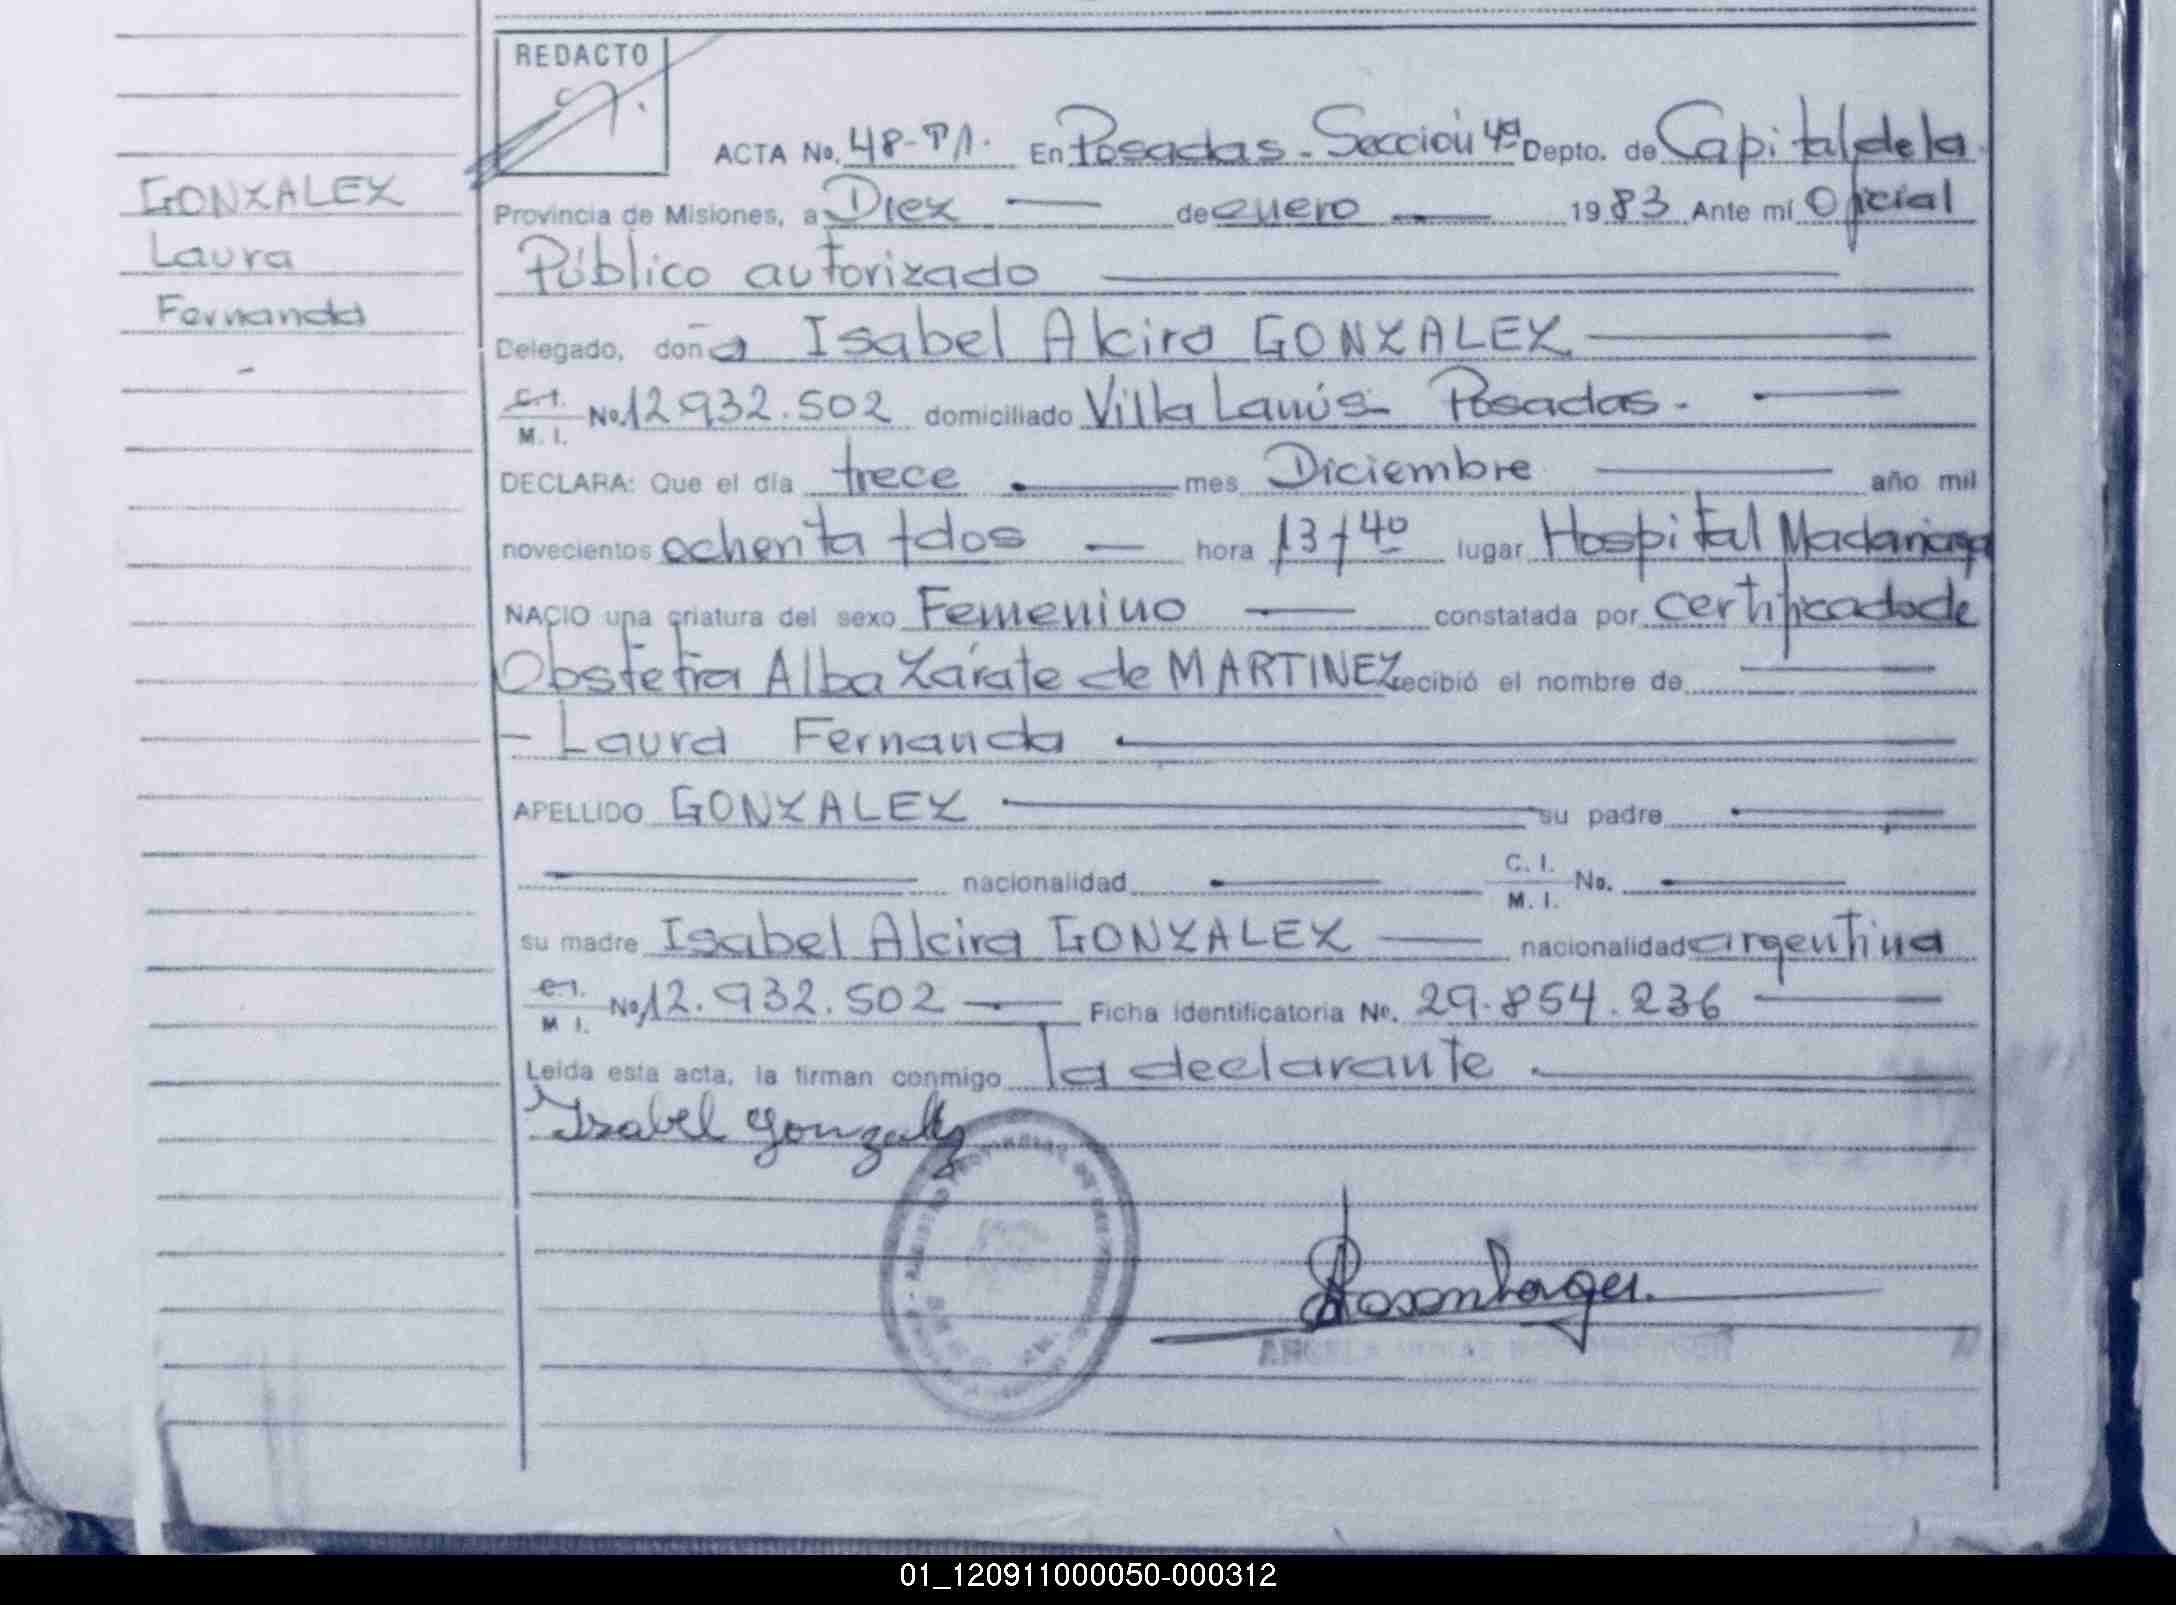 REDACTO
ACTA No. 48-T/1. En Posadas - Sección 4ª Depto. de Capital de la
GONZALEZ
Provincia de Misiones, a Diez de enero 1983 Ante mí Oficial
Laura
Público autorizado
Fernanda
Delegado, doña Isabel Alcira GONZALEZ
C.I. M. I. No. 12.932.502 domiciliado Villa Lanús - Posadas.
DECLARA: Que el día trece mes Diciembre año mil
novecientos ochenta y dos hora 13 y 40 lugar Hospital Madariaga
NACIO una criatura del sexo Femenino constatada por certificado de
Obstetra Alba Zárate de MARTINEZ recibió el nombre de
- Laura Fernanda
APELLIDO GONZALEZ su padre
nacionalidad C. I. M. I. No.
su madre Isabel Alcira GONZALEZ nacionalidad argentina
C.I. M I. No. 12.932.502 Ficha identificatoria No. 29.854.236
Leída esta acta, la firman conmigo la declarante
Isabel Gonzalez
Rosenberger.
01_120911000050-000312